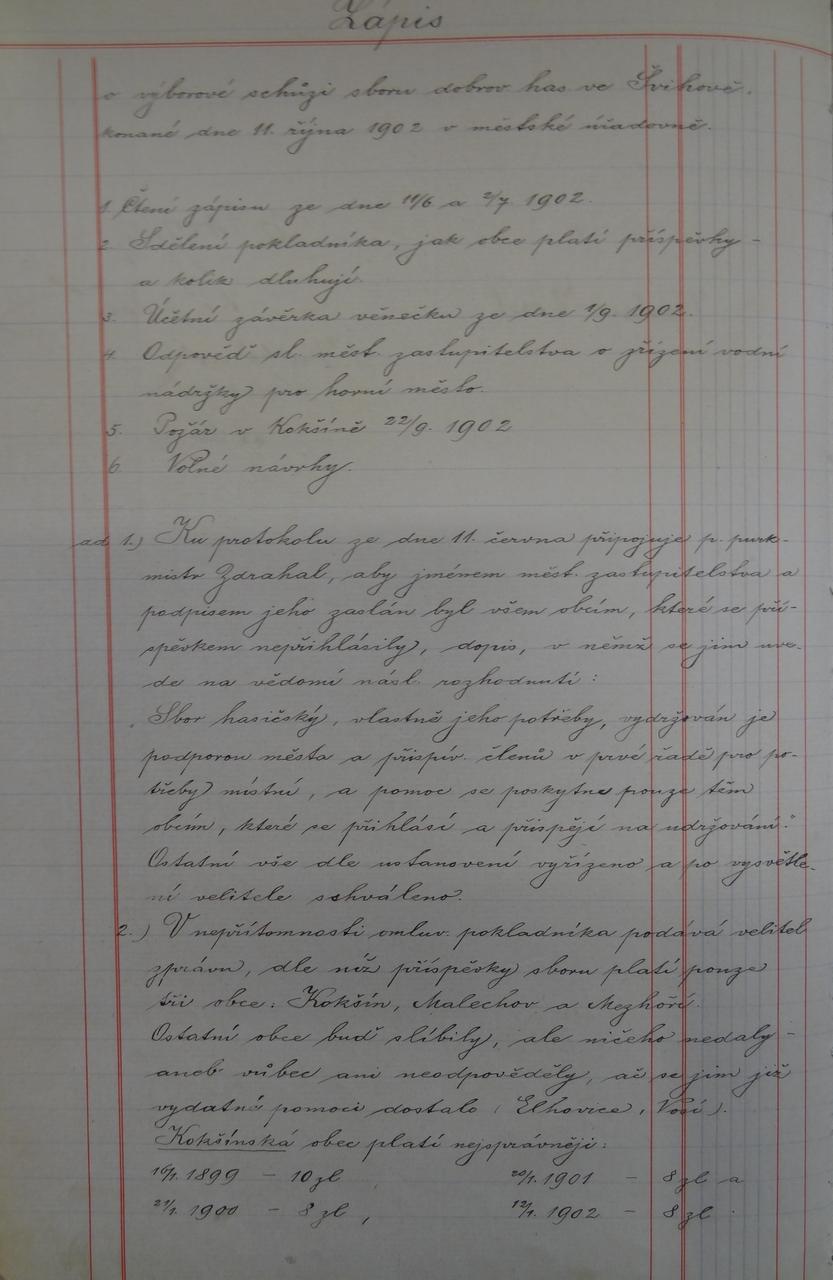 Zápis
o výborové schůzi sboru dobrov. has. ve Švihově.
konané dne 11. října 1902 v městské úřadovně.
1. Čtení zápisu ze dne 11/6 a 2/7 1902.
2. Sdělení pokladníka, jak obce platí příspěvky –
a kolik dluhují.
3. Účetní závěrka věnečku ze dne 1/9. 1902.
4. Odpověď sl. měst. zastupitelstva o zřízení vodní
nádržky pro horní město.
5. Požár v Kokšíně 22/9. 1902
6. Volné návrhy.
ad 1.) Ku protokolu ze dne 11. června připojuje p. purk-
mistr Zdrahal, aby jménem měst. zastupitelstva a
podpisem jeho zaslán byl všem obcím, které se pří-
spěvkem nepřihlásily, dopis, v němž se jim uve-
de na vědomí násl. rozhodnutí:
Sbor hasičský, vlastně jeho potřeby, vydržován je
podporou města a přispív. členů v prvé řadě pro po-
třeby místní, a pomoc se poskytne pouze těm
obcím, které se přihlásí a přispějí na udržování."
Ostatní vše dle ustanovení vyřízeno a po vysvětle-
ní velitele schváleno.
2.) V nepřítomnosti omluv. pokladníka podává velitel
zprávu, dle níž příspěvky sboru platí pouze
tři obce: Kokšín, Malechov a Mezhoří.
Ostatní obce buď slíbily, ale ničeho nedaly –
aneb vůbec ani neodpověděly, ač se jim již
vydatné pomoci dostalo (Elhovice, Vosí).
Kokšínská obec platí nejsprávněji:
16/1. 1899 – 10 zl 20/1. 1901 – 8 zl a
21/1. 1900 – 8 zl, 12/1. 1902 – 8 zl.